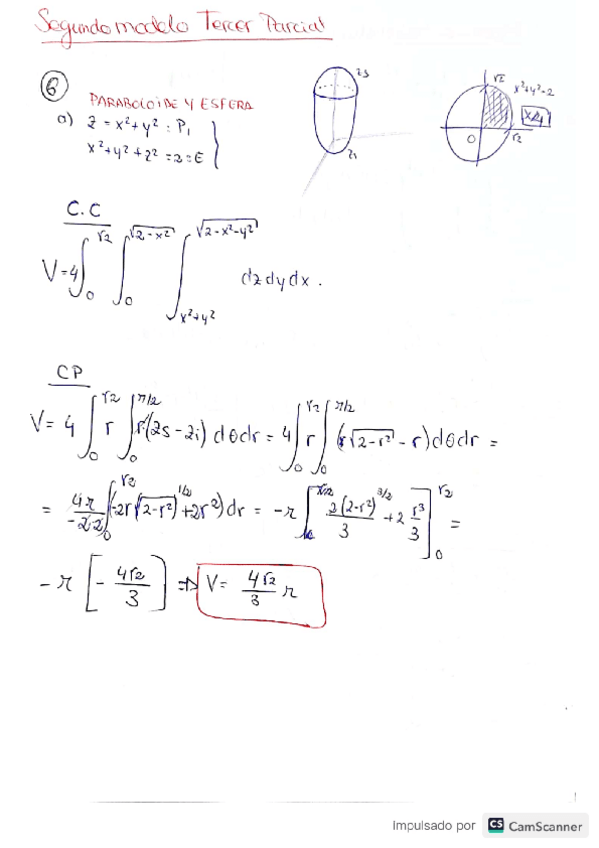 Segundo modelo Tercer Parcial
6
PARABOLOIDE Y ESFERA
a) z = x² + y² : P₁
x² + y² + z² = 2 = E
zs
zi
√2
x²+y²=2
x,y
0
√2
C.C
V = 4 ∫₀^√2 ∫₀^√(2-x²) ∫_{x²+y²}^√(2-x²-y²) dz dy dx.
CP
V = 4 ∫₀^√2 r ∫₀^π/2 (zs - zi) dθdr = 4 ∫₀^√2 r ∫₀^π/2 (√(2-r²) - r) dθdr =
= 4π/(-2·2) ∫₀^√2 (-2r(2-r²)^1/2 + 2r²) dr = -π [2(2-r²)^3/2 / 3 + 2 r³/3]₀^√2 =
-π [-4√2/3] ⇒ V = 4√2/3 π
Impulsado por CS CamScanner